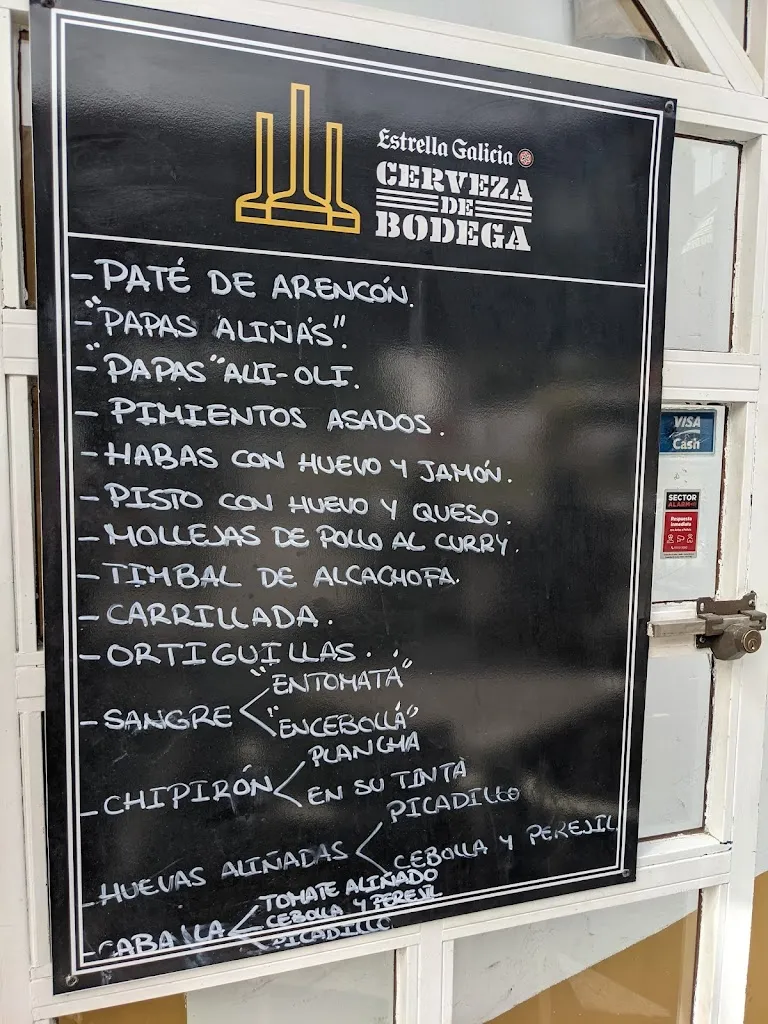 Estrella Galicia
CERVEZA
DE
BODEGA
- PATÉ DE ARENCÓN.
- "PAPAS ALIÑÁS".
- "PAPAS" ALI-OLI.
- PIMIENTOS ASADOS.
- HABAS CON HUEVO Y JAMÓN.
- PISTO CON HUEVO Y QUESO.
- MOLLEJAS DE POLLO AL CURRY.
- TIMBAL DE ALCACHOFA.
- CARRILLADA.
- ORTIGUILLAS.
- SANGRE < "ENTOMATÁ"
"ENCEBOLLÁ"
- CHIPIRÓN < PLANCHA
EN SU TINTA
- HUEVAS ALIÑADAS < PICADILLO
CEBOLLA Y PEREJIL
- CABALLA < TOMATE ALIÑADO
CEBOLLA Y PEREJIL
PICADILLO
VISA
Cash
SECTOR
ALARM
Respuesta
inmediata